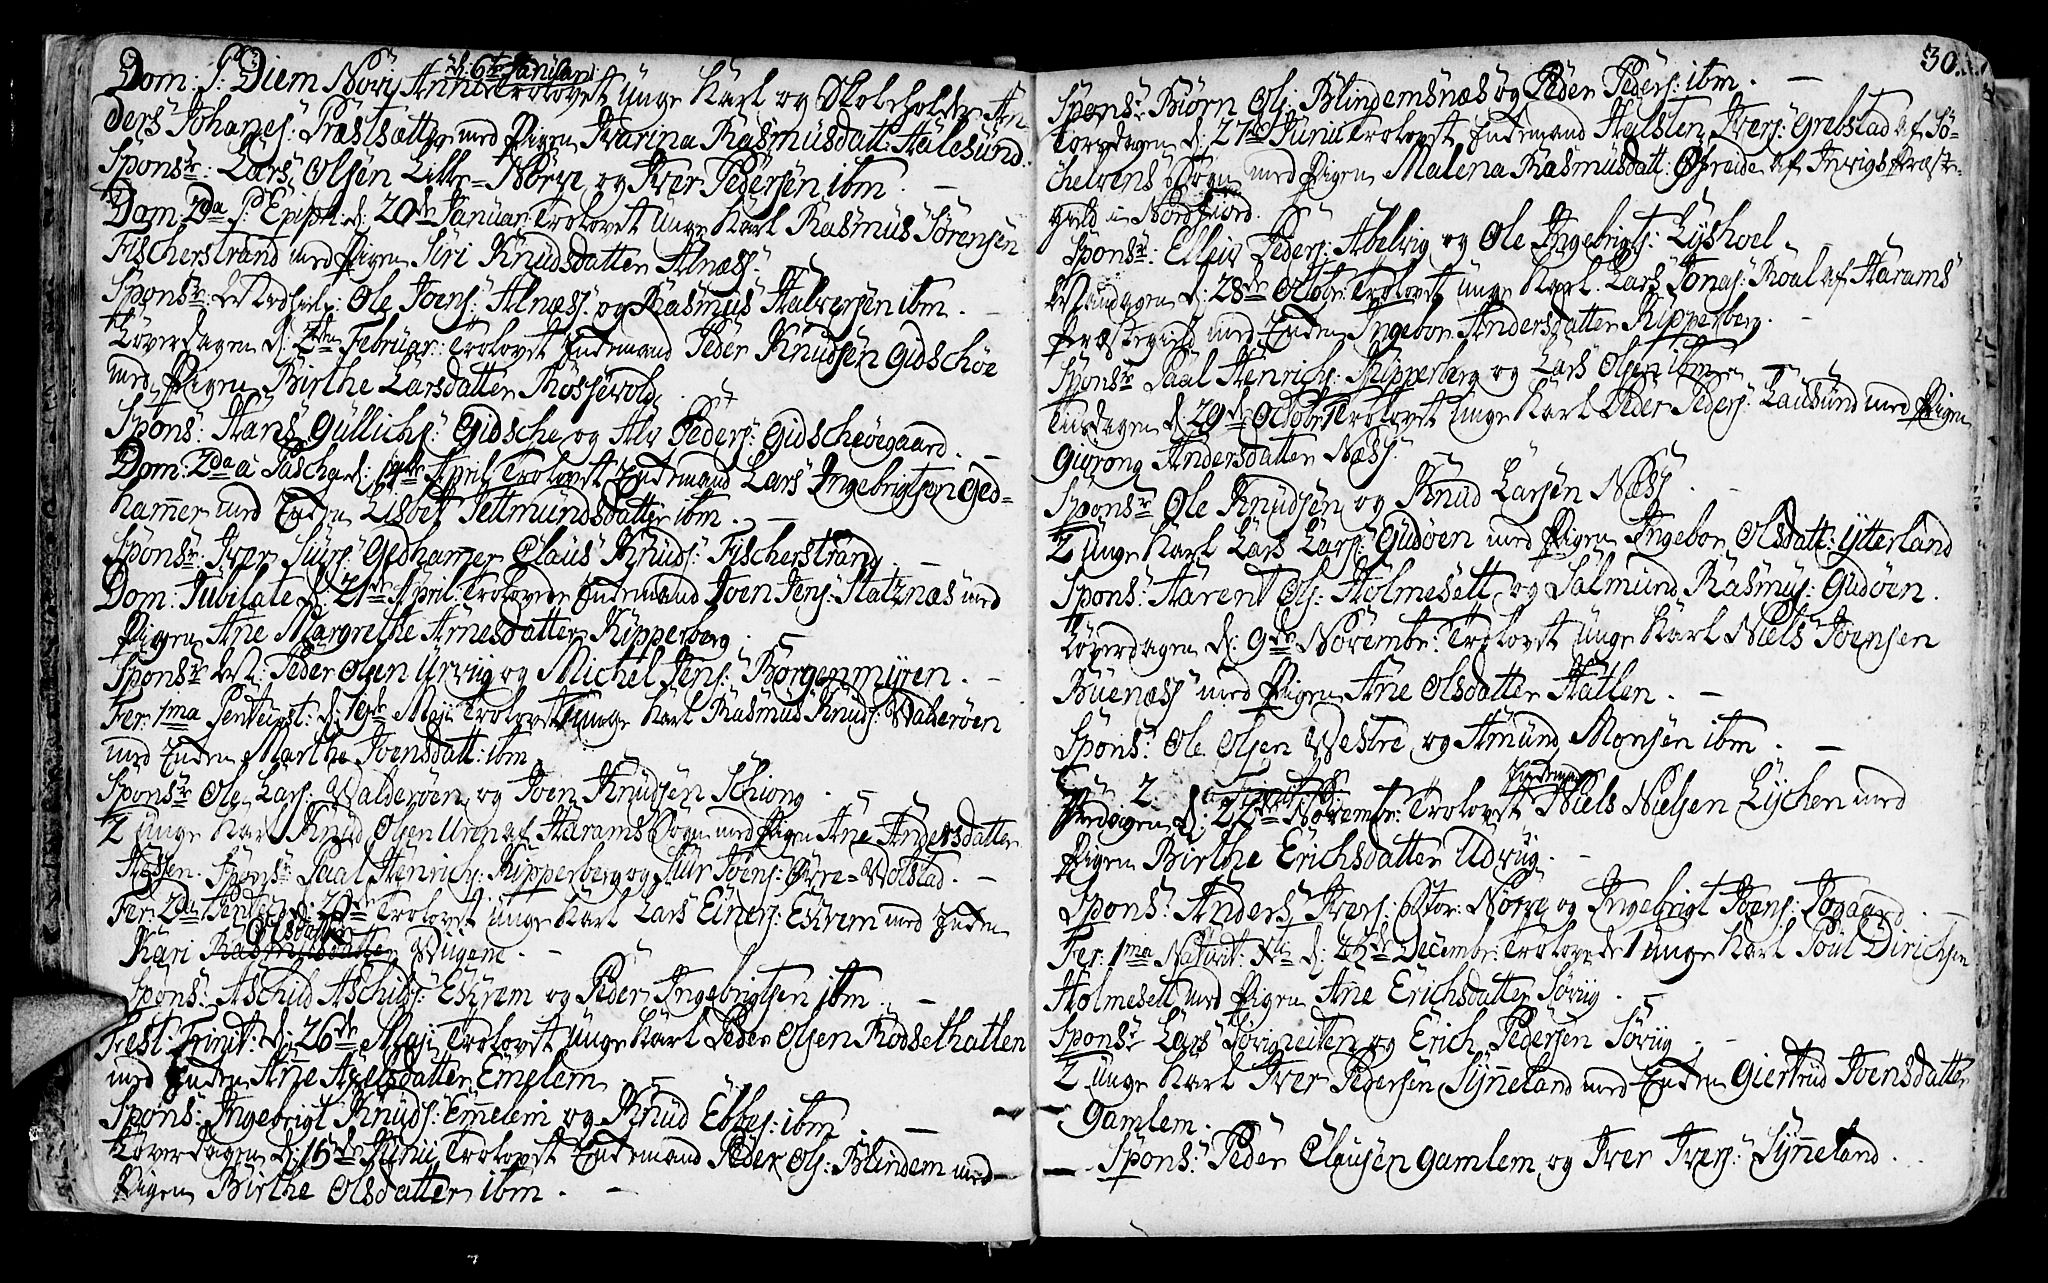 Dom: P: Diem Novi Anni d. 6te Januarii Trolovet unge Karl og Skoleholder An-
ders Johanes: Præstsætter med Pigen Karina Rasmusdatt: Aalesund.
Sponsr: Lars Olsen Lille-Nørve og Iver Pedersen ibm. -
Dom: 2da P: Epiph: d: 20de Januar: Trolovet unge Karl Rasmus Sørensen
Fischerstrand med Pigen Siri Knudsdatter Alnæss.
Sponsr: Ole Joens: Alnæss: og Rasmus Halvorsen ibm. -
Løverdagen d: 2den Februar: Trolovet Enkemand Peder Knudsen Gidschøe
med Pigen Birthe Larsdatter Røssevold.
Spons: Hans Gullichs: Gidsche og Alv Peders: Gidschøegaard. -
Dom: 2da a Pascha d: April Trolovet Enkemand Lars Ingebrigtsen Ged-
hamer med Enken Lisbet Jettmundsdatter ibm. -
Sponsr: Iver Siurs: Gedhamer Claus Knuds: Fischerstrand. -
Dom: Jubilate d: 21de April: Trolovede Enkemand Joen Jens: Statznæs med
Pigen Ane Margrethe Arnesdatter Kipperberg.
Sponsr Peder Olsen Urvig og Michel Jens: Borgenmyren. -
Fer: 1ma Pentecost: d: 19de Maji Trolovet unge Karl Rasmus Knuds: Walderøen
med Enken Marthe Joensdatt: ibm.
Sponsr Ole Lars: Walderøen og Joen Knudsen Schiong. -
2 unge Karl Knud Olsen Uren af Harams Sogn med Pigen Ane Andersdatter
Hessen. Sponsr: Paal Henrichs: Kipperberg og Siur Joens: Øvre-Wolstad. -
Fer: 2da Pentec: d: 20de Trolovet unge Karl Lars Einers: Eskrem med Enken
Kari Rasmusdatter Olsdatter Wugene. -
Spons: Aschild Aschilds: Eskrem og Peder Ingebrigtsen ibm. -
Fest: Trinit: d: 26de Maji Trolovet unge Karl Peder Olsen Rødsethatlen
med Enken Ane Axelsdatter Emelem. -
Spons: Ingebrigt Knuds: Emelem og Knud Ebbes: ibm. -
Løverdagen d: 15de Junii Trolovet Enkemand Peder Ols: Blindem med
Pigen Birthe Olsdatter ibm. -
30.
Sponsr: Biørn Ols: Blindemsnæs og Peder Peders: ibm. -
Torsdagen d: 27de Junii Trolovet Enkemand Halsten Ivers: Grebstad af Sø-
chelvens Sogn med Pigen Malena Rasmusdatt: Øfreide af Invigs Præste-
gield i Nordfiord.
Sponsr: Ellev Peders: Abelvig og Ole Ingebrigts: Lyshoel. -
Mandagen d: 28de Octobr: Trolovet unge Karl Lars Jonas: Roal af Harams
Præstegield med Enken Ingebor Andersdatter Kipperberg. -
Sponsr Paal Henrichs: Kipperberg og Lars Olsen ibm. -
Tiisdagen d: 29de Octobr: Trolovet unge Karl Peder Peders: Lausund med Pigen
Guroug Andersdatter Næss.
Sponsr Ole Knudsen og Knud Larsen Næss. -
2 unge Karl Lars Lars: Gudøen med Pigen Ingebor Olsdatt: Ytterland
Spons: Haren Ols: Holmesett og Salmund Rasmus: Gudøen.
Løverdagen d: 9de Novembr: Trolovet unge Karl Niels Joensen
Buenæss med Pigen Ane Olsdatter Hatlen. -
Spons: Ole Olsen Vestre og Amund Monsen ibm. -
Fredagen d: 22de Novembr: Trolovet Enkemand Niels Nielsen Lychen med
Pigen Birthe Erichsdatter Udvug. -
Spons: Anders Ivers: Stor: Nørve og Ingebrigt Joens: Togaard. -
Fer: 1ma Nativit: Xti d: 25de Decembr: Trolovede 1 unge Karl Poul Dirichsen
Holmesett med Pigen Ane Erichsdatter Søviig. -
Sponsr Lars Søvigneiten og Erich Pedersen Søviig. -
2 unge Karl Iver Pedersen Synneland med Enken Giertrud Joensdatter
Gamlem.
Spons: Peder Clausen Gamlem og Iver Ivers: Synneland.